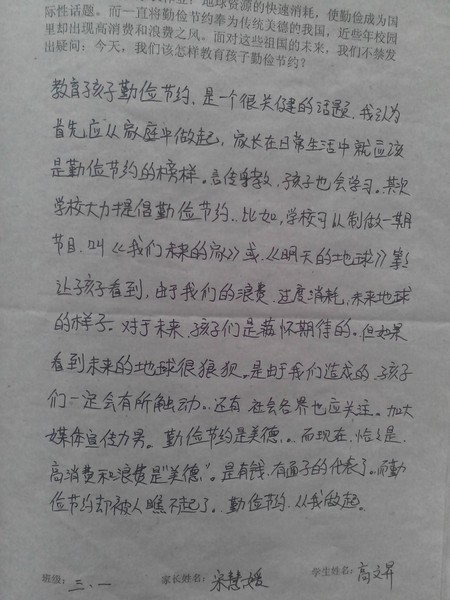 地球资源的快速消耗，使勤俭成为国
际性话题。而一直将勤俭节约奉为传统美德的我国，近些年校园
里却出现高消费和浪费之风。面对这些祖国的未来，我们不禁发
出疑问：今天，我们该怎样教育孩子勤俭节约？
教育孩子勤俭节约，是一个很关健的话题。我认为
首先应从家庭中做起，家长在日常生活中就应该
是勤俭节约的榜样。言传身教，孩子也会学习。其次
学校大力提倡勤俭节约。比如，学校可以制做一期
节目，叫《我们未来的家》或《明天的地球》等
让孩子看到，由于我们的浪费，过度消耗，未来地球
的样子。对于未来，孩子们是满怀期待的。但如果
看到未来的地球很狼狈。是由于我们造成的，孩子
们一定会有所触动。还有社会各界也应关注。加大
媒体宣传力男。勤俭节约是美德。而现在，恰恰是，
高消费和浪费是"美德"。是有钱，有面子的代表了。而勤
俭节约却被人瞧不起了。勤俭节约，从我做起。
班级：三、一 家长姓名：宋慧媛 学生姓名：高文昇